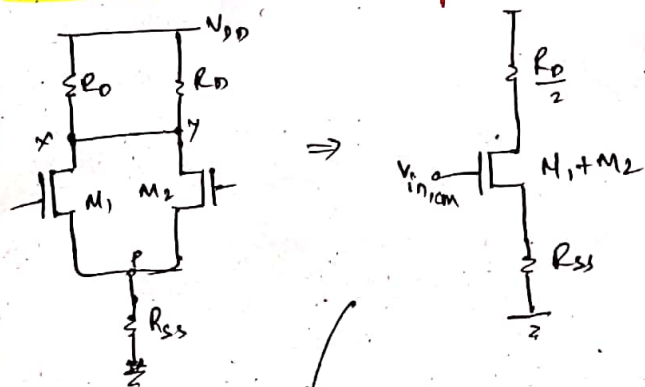 VDD
RD
RD
X
Y
M1
M2
P
RSS
⇒
RD/2
Vin,CM
M1+M2
RSS